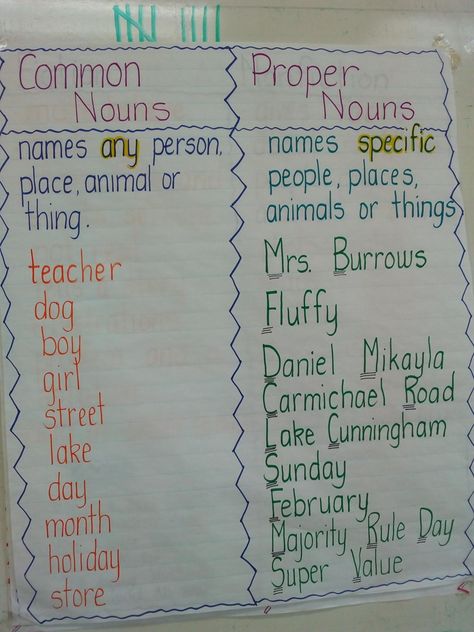 Common
Nouns
names any person,
place, animal or
thing.
teacher
dog
boy
girl
street
lake
day
month
holiday
store
Proper
Nouns
names specific
people, places,
animals or things
Mrs. Burrows
Fluffy
Daniel Mikayla
Carmichael Road
Lake Cunningham
Sunday
February
Majority Rule Day
Super Value